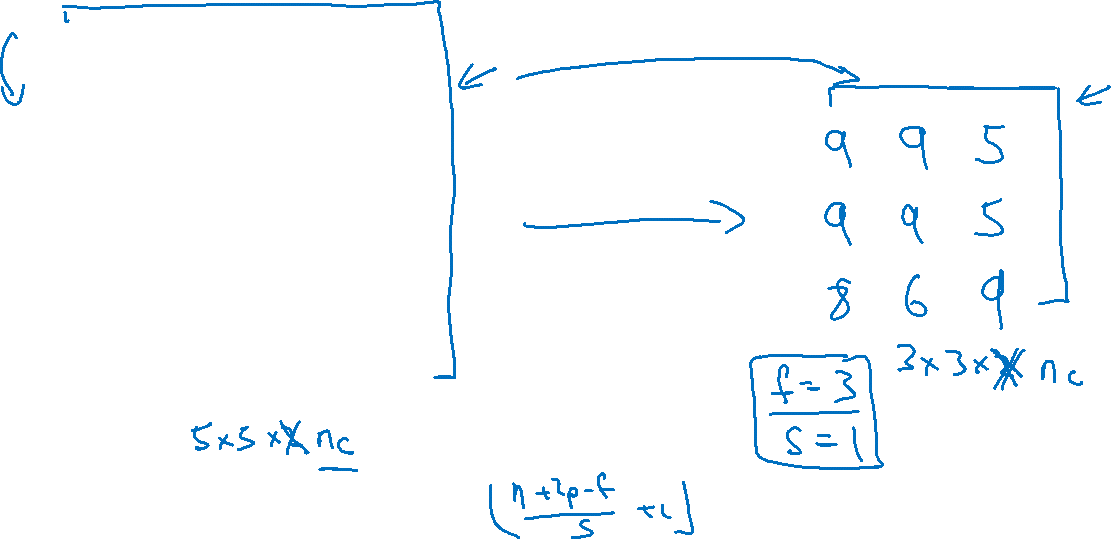 9 9 5
9 9 5
8 6 9
3×3× nc
f = 3
s = 1
5×5× nc
⌊(n+2p-f)/s +1⌋